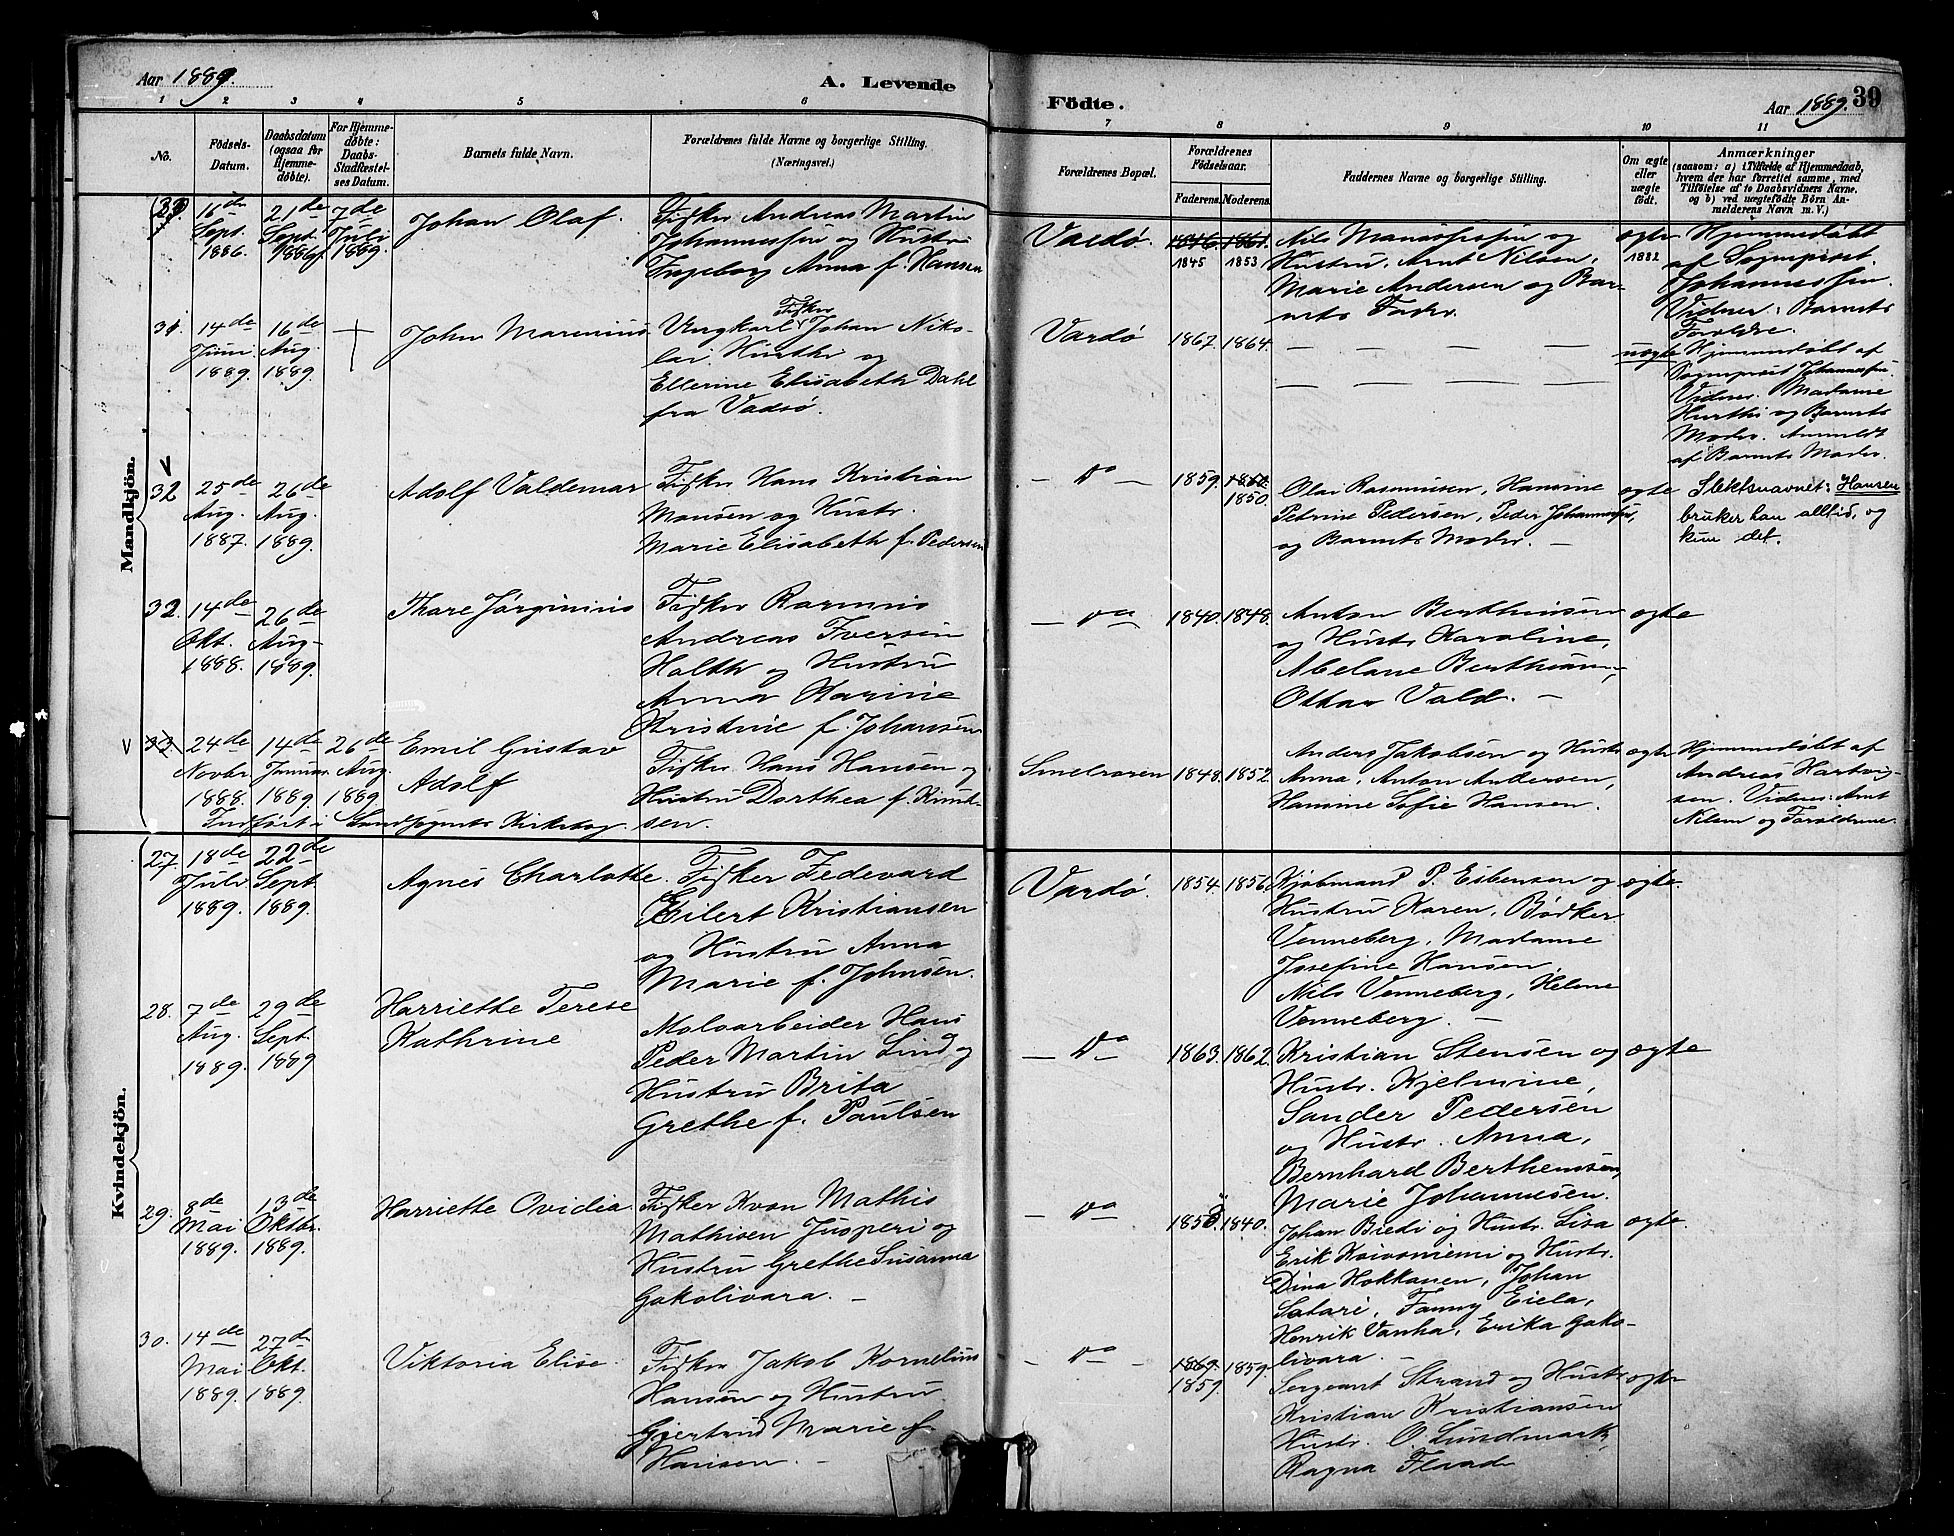 Aar 1889.
A. Levende
Födte.
Aar 1889.
39
1 2 3 4 5 6 7 8 9 10 11
No.
Födsels-
Datum.
Daabsdatum
(ogsaa for
Hjemme-
døbte).
For Hjemme-
døbte:
Daabs-
Stadfæstel-
ses Datum.
Barnets fulde Navn.
Forældrenes fulde Navne og borgerlige Stilling.
(Næringsvei.)
Forældrenes Bopæl.
Forældrenes
Födselsaar.
Faderens.
Moderens.
Faddernes Navne og borgerlige Stilling.
Om ægte
eller
uægte
født.
Anmærkninger
(saasom: a) i Tilfælde af Hjemmedaab,
hvem der har forrettet samme, med
Tilföielse af to Daabsvidners Navne,
og b) ved uægtefödte Börn An-
melderens Navn m. V.)
Mandkjön.
16de
Sept.
1886.
21de
Sept.
1886
7de
Juli
1889.
Johan Olaf.
Fisker Andreas Martin
Johannessen og Hustru
Ingeborg Anna f. Hansen
Vardø.
1846. 1861.
1845 1853
Nils Manassesen og
Hustru, Arnt Nilsen,
Marie Andersen og Bar-
nets Fader.
ægte
1882
Hjemmedøbt
af Sogneprest
Johannessen.
Vidner: Barnets
Forældre.
31.
14de
Juni
1889.
16de
Aug.
1889.
†
John Marenius
Fisker
Ungkarl Johan Niko-
lai Hurthi og
Ellerine Elisabeth Dahl
fra Vadsø.
Vardø
1867. 1864.
— — — —
— — — —
uægte
Hjemmedøbt af
Sogneprest Johannessen.
Vidner: Madame
Hurthi og Barnets
Moder. Anmeldt
af Barnets Moder.
32
25de
Aug.
1887.
26de
Aug.
1889.
Adolf Valdemar
Fisker Hans Kristian
Monsen og Hustr.
Marie Elisabeth f. Pedersen
— Do —
1859.
1850.
Olai Rasmussen, Hansine
Petrine Pedersen, Peder Johannesen,
og Barnets Moder. —
ægte
Slektsnavnet: Hansen
bruker han alltid, og
kun det.
32.
14de
Okt.
1888.
26de
Aug.
1889.
Thare Jørginius
Fisker Rasmus
Andreas Iversen
Holth og Hustru
Anna Karine
Kristine f. Johansen
— Do —
1840. 1848.
Anton Berthinsen
og Hustr. Karoline,
Abelone Berthinsen,
Ottar Vald. —
ægte
V
33.
24de
Novbr.
1888.
14de
Januar
1889.
26de
Aug.
1889.
Emil Gustav
Adolf
Fisker Hans Hansen og
Hustru Dorthea f. Knud-
sen.
Indført i Landsognets Kirkebog.
Smelroren
1848. 1852.
Anders Jakobsen og Hustr.
Anna, Anton Andersen,
Hansine Sofie Hansen.
ægte
Hjemmedøbt af
Andreas Hartvig-
sen. Vidner: Arnt
Nilsen og Forældrene.
Kvindekjön.
27.
18de
Juli
1889.
22de
Sept.
1889.
Agnes Charlotte.
Fisker Fedevard
Eilert Kristiansen
og Hustru Anna
Marie f. Johnsen.
Vardø.
1854. 1856.
Kjøbmand P. Esbensen og
Hustru Karen, Bødker
Venneberg, Madame
Josefine Hansen,
Nils Venneberg, Helene
Venneberg. —
ægte.
28.
7de
Aug.
1889.
29de
Sept.
1889
Harriette Terese
Kathrine
Moloarbeider Hans
Peder Martin Lind og
Hustru Brita
Grethe f. Paulsen
— Do —
1863. 1862.
Kristian Stensen og
Hustr. Kjelmine,
Sander Pedersen
og Hustr. Anna,
Bernhard Berthemsen,
Marie Johannesen.
ægte
29.
8de
Mai
1889.
13de
Oktbr.
1889.
Harriette Ovidia
Fisker Kvæn Mathis
Mathisen Jusperi og
Hustru Grethe Susanna
Gakolivara. —
— Do —
1840.
Johan Biedi og Hustr. Lisa
Erik Koivoniemi og Hustr.
Dina Hokkanen, Johan
Salari, Fanny Eiela,
Henrik Vanha, Erika Gako-
livara. —
ægte.
30.
14de
Mai
1889.
27de
Okt.
1889.
Viktoria Elise.
Fisker Jakob Kornelius
Hansen og Hustru
Gjertrud Marie f.
Hansen. —
— Do —
1869. 1859.
1859.
Sergeant Strand og Hustr.
Kristian Kristiansen
Hustr. O. Lundmark,
Ragna
ægte